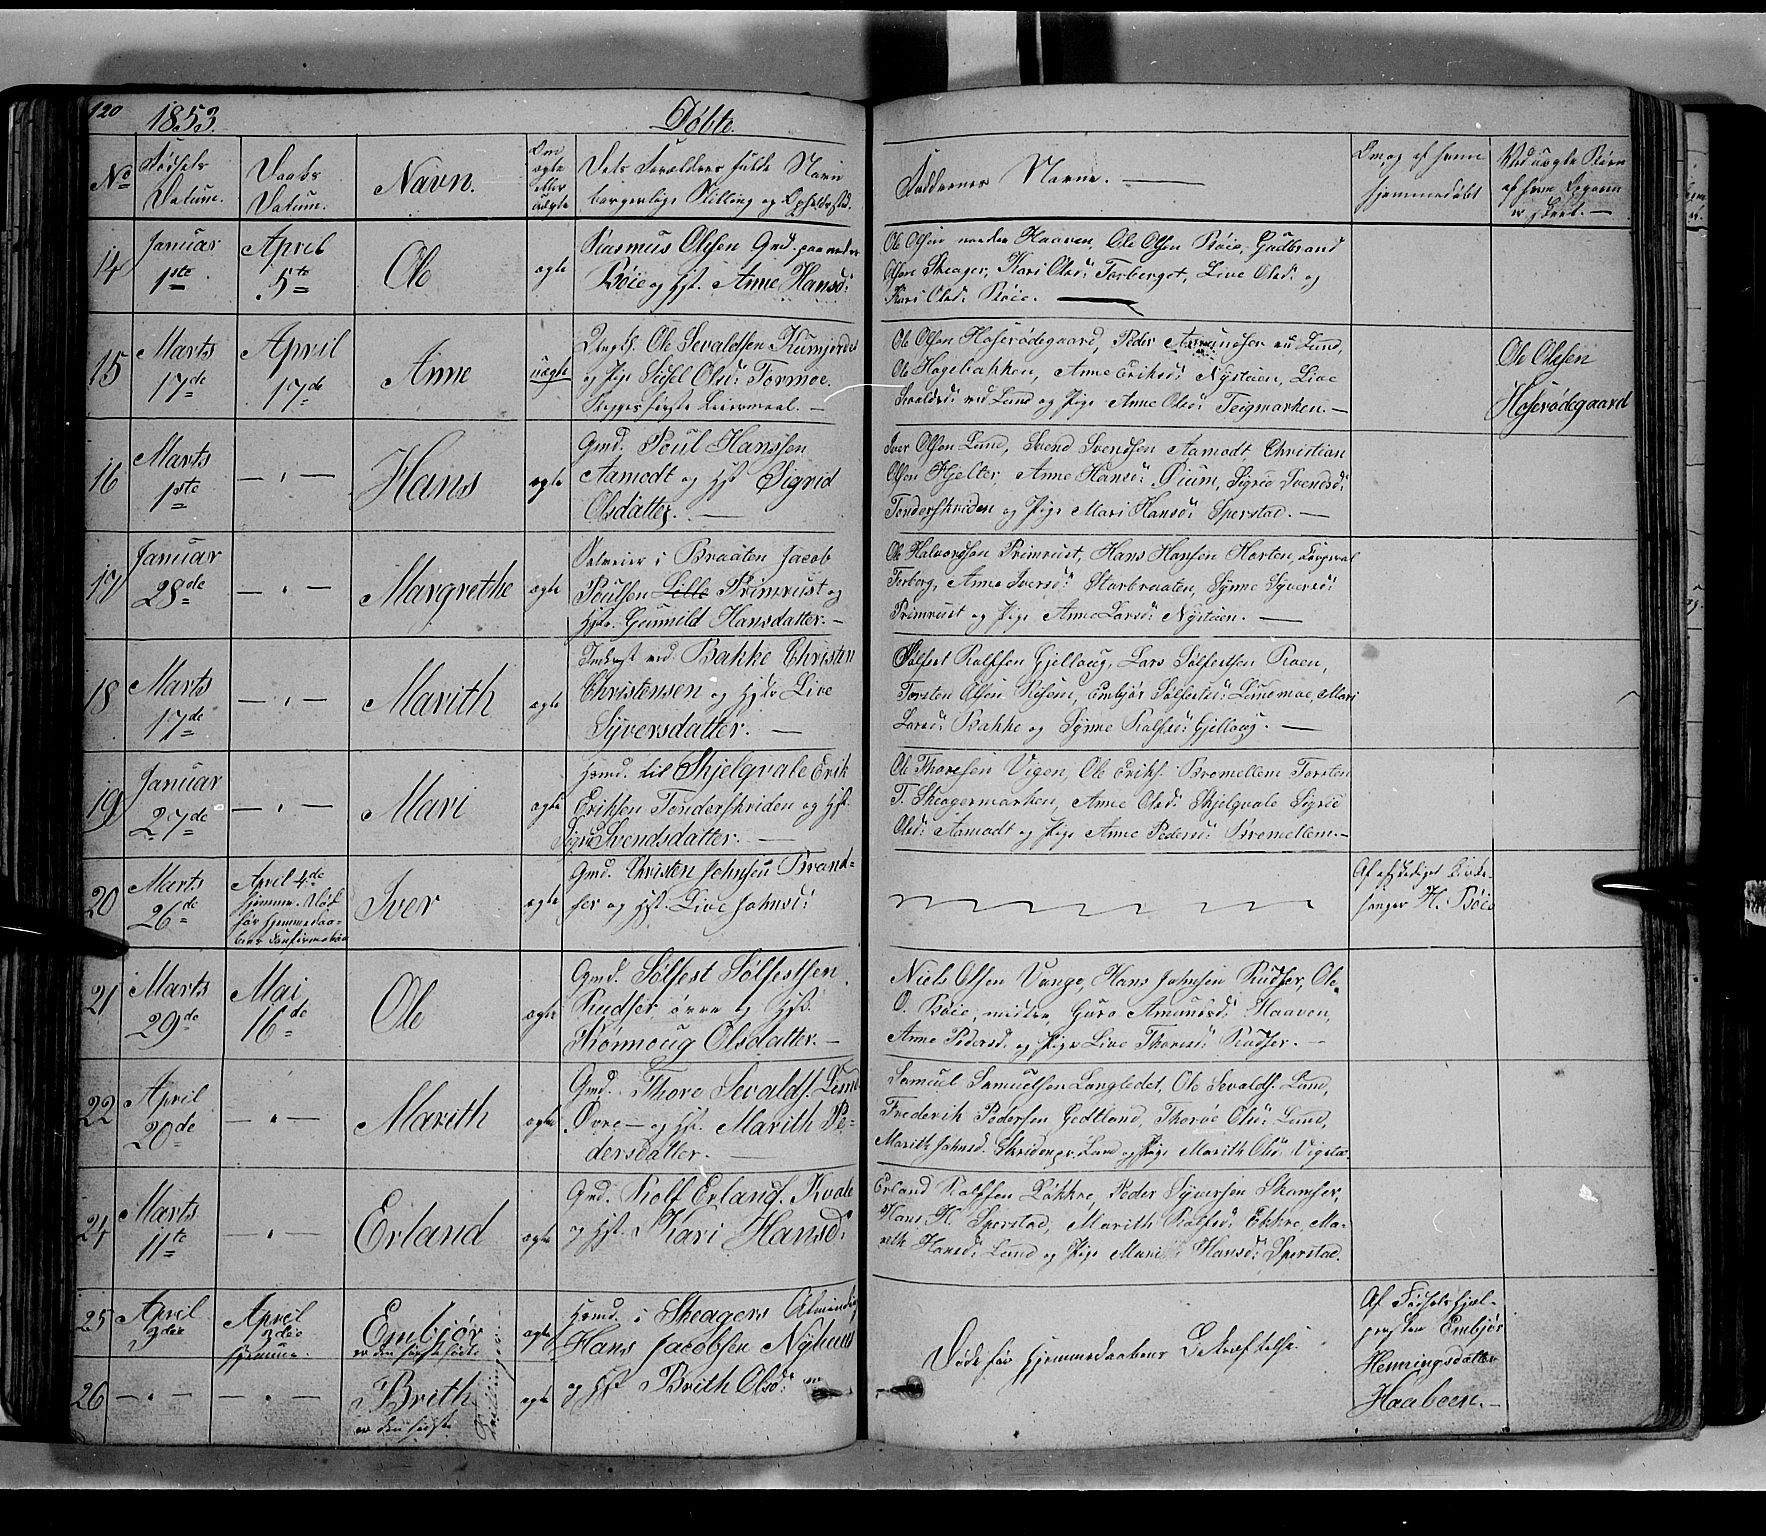 120 1853. Døbte.
No Fødsels Datum. Daabs Datum. Navn. Om ægte eller uægte Dets Forældres fulde Navn borgerlige Stilling og Opholdssted. Faddernes Navne. Om og af hvem hjemmedøbt Ved uægte Børn af hvem
14 Januar 1ste April 5te Ole ægte
Rasmus Olsen Gmd. paa nedre
Bøie og Hst. Anne Hansd:
Ole Olsen nordre Haaven, Ole Olsen Bøie, Gudbrand
Olsen Skeager, Kari Olsd: Forberget, Live Olsd: og
Kari Olsd: Bøie.
15 Marts 17de April 17de Anne uægte
Ungk. Ole Sevaldsen
og Pige Sidsel Olsd: Formoe.
Begges første Leiermaal.
Ole Olsen Hoserødegaard, Peder Amundsen Lund,
Ole Hagebakken, Anne Eriksd: Nystuen, Live
ved Lund og Pige Anne Olsd: Teigmarken.
Ole Olsen
Hoserødegaard
16 Marts 1ste Hans ægte
Gmd. Poul Hanssen
Aamodt og Hst Sigrid
Olsdatter.
Iver Olsen Lund, Svend Svendsen Aamodt Christian
Olsen Hjelter, Anne Hansd: Øium, Sigrid Svendsd:
Tønderskriden og Pige Mari Hansd: Sperstad.
17 Januar 28de Margrethe ægte
i Braaten Jacob
Poulsen Lille Primrust og
Hst. Gunnild Hansdatter.
Ole Halvordsen Primrust, Hans Hansen Horten,
Forberg, Anne Iversd: Storbraaten, Synne Syversd:
Primrust og Pige Anne Larsd: Nystuen.
18 Marts 17de Marith ægte
Inderst ved Bakke Christen
Christensen og Hst Live
Syversdatter.
Solfest Rolfsen Gjelloug, Lars Solfestsen Roen,
Torsten Olsen Rosum, Embjør Solfestsd: Lunemoe, Mari
Larsd: Bakke og Synne Rolfsd: Gjelloug.
19 Januar 27de Mari ægte
Hsmd. til Skjelqvale Erik
Eriksen Tønderskriden og Hst.
Sigrid Svendsdatter.
Ole Thoresen Vigen, Ole Eriks. Bromellem Torsten
T. Skeagermarken, Anne Olsd: Skjelqvale Sigrid
Olsd: Aamodt og Pige Anne Pedersd: Bromellem.
20 Marts 26de April 4de Hjemme. Død før Hjemmedaabens Confirmation Iver ægte
Gmd. Christen Johnsen Brand-
ser og Hst. Live Johnsd:
Af afskediget Kirke-
sanger H. Bøie
21 Marts 29de Mai 16de Ole ægte
Gmd. Solfest Solfestsen
Rudser øvre og Hst.
Rønnoug Olsdatter.
Niels Olsen Vange, Hans Johnsen Rudser, Ole
O. Bøie, midtre, Guro Amundsd: Haaven,
Anne Pedersd. og Pige Live Thoresd: Rudser.
22 April 20de Marith ægte
Gmd. Thore Sevalds. Lund
Øvre og Hst. Marith Pe-
dersdatter.
Samuel Samuelsen Langledet, Ole Sevalds. Lund,
Frederik Pedersen Jedtland, Thorve Olsd: Lund,
Marith Johnsd. Skriden pr. Lund og Pige Marith Olsd:
24 Marts 11te Erland ægte
Gmd. Rolf Erlands. Kvale
og Hst. Kari Hansd:
Erland Rolfsen Løkkre, Peder Syversen Skamser,
Hans H. Sperstad, Marith Rolfsd: Ekkre, Ma-
rith Hansd: Lund og Pige Marith Hansd: Sperstad.
25 April 3die April 3die Hjemme. Embjør er den førstfødte ægte
Hsmd. i Skeagers Almending
Hans Jacobsen Nyhuus
Døde før Hjemmedaabens Bekræftelse.
Af Fødselshjæl-
persken Embjør
Henningsdatter
Haaboen.
26 Brith er den sidste Tvillinger ægte
og Hst Brith Olsd: